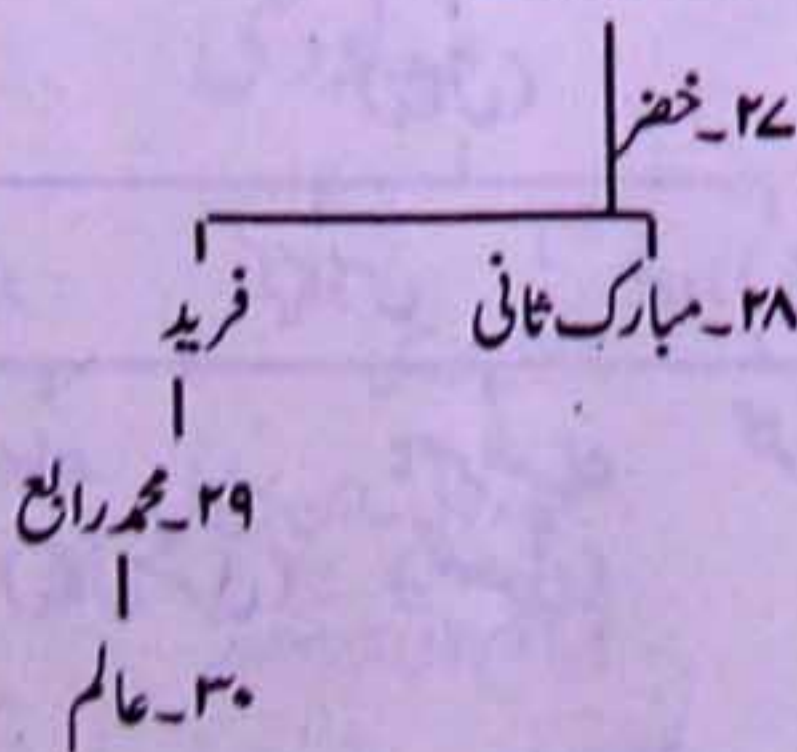 ۲۷۔خضر
۲۸۔مبارک ثانی
فرید
۲۹۔محمد رابع
۳۰۔عالم